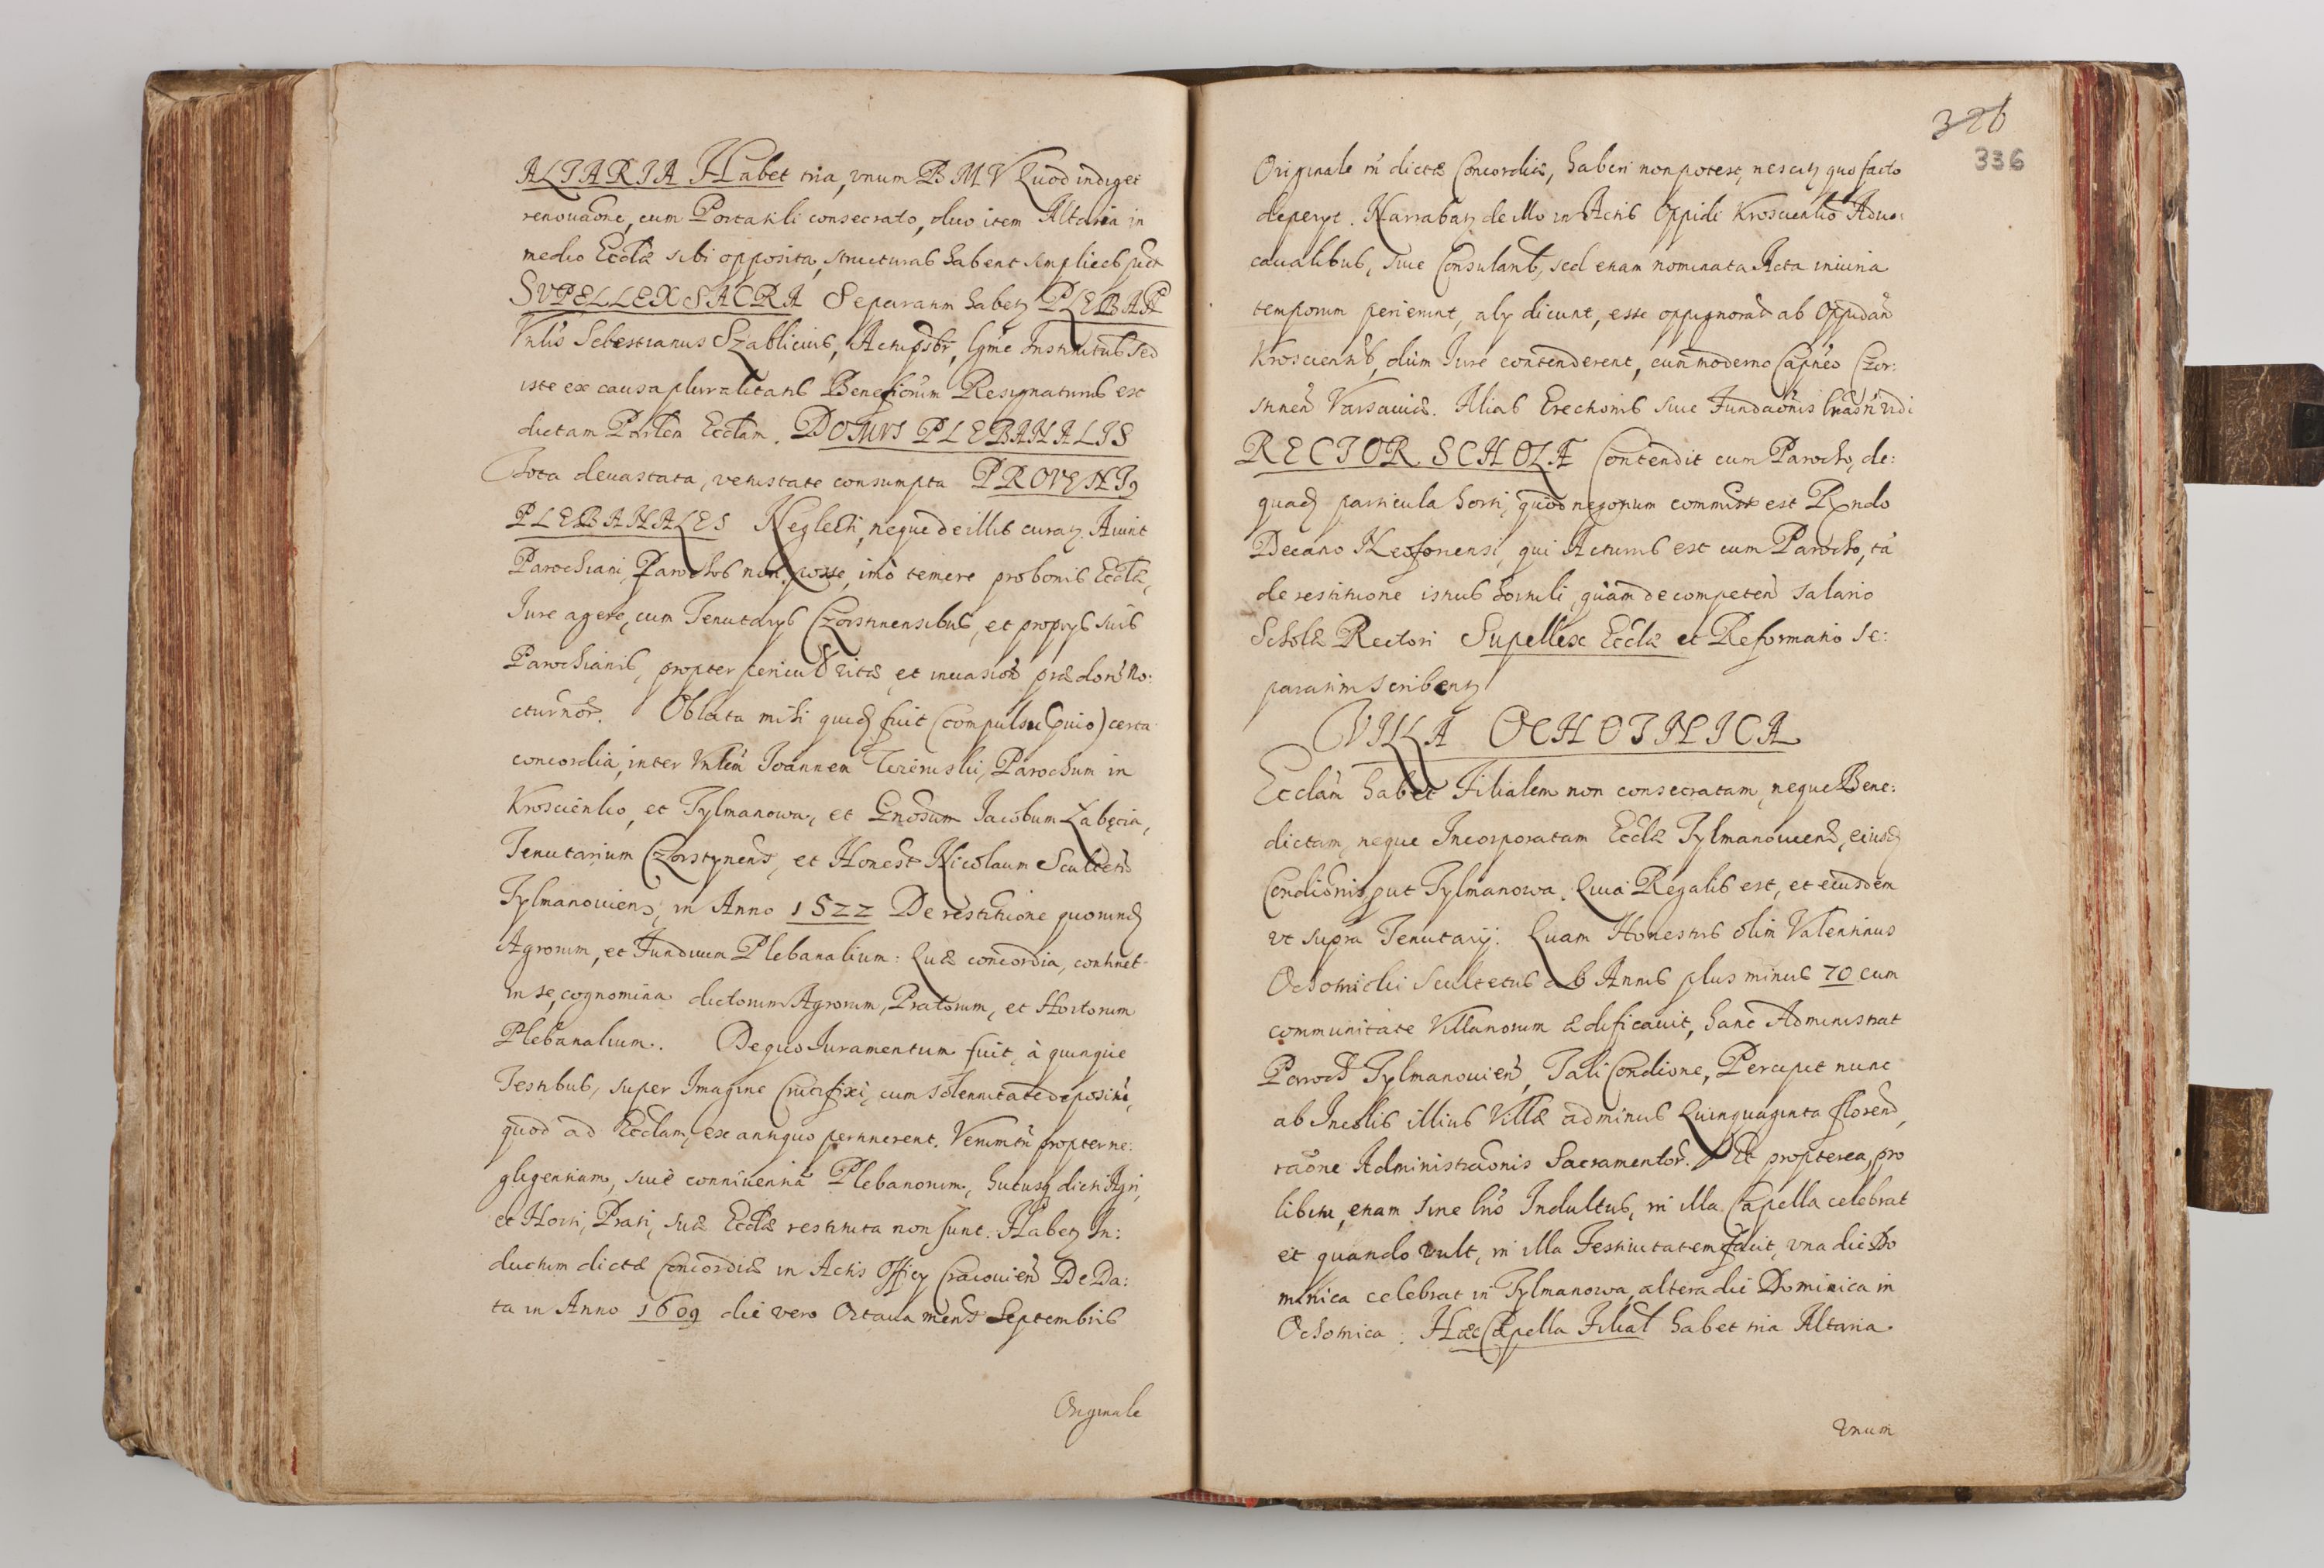 ALTARIA Habet tria, vnum B M V Quod indiget
renouaõne, cum Portatili consecrato, duo item Altaria in
medio Ecclæ sibi opposita, structuras habent simplices
SVPELLEX SACRA Separatim habetꝫ PLEBAN
Vnlis Sebestianus Szablicius, Actu psbr, lgme Institutus sed
iste ex causa pluralitatis Beneficiorum Resignaturus est
dictam Eccłam. DOMVS PLEBANALIS
Tota deuastata, vetustate consumpta PROVENTꝰ
PLEBANALES Neglecti, neque de illis curatꝫ. Aiunt
Parochiani, Parochos non posse, imò temere pro bonis Ecclæ,
Iure agere, cum Tenutarys Czorstinensibus, et proprys suis
Parochianis, propter pericul vitæ et inuasion prædonũ no:
cturnor. Oblata mihi quidẽ fuit (compulsu) certa
concordia, inter Vnlem Joannem Parochum in
Kroscienko, et Tylmanowa, et Gnosum Jacobum Łabęcia,
Tenutarium Czorstynens, et Honest Nicolaum Scultetũ
Tylmanouiens, in Anno 1522 De restitutione quorundꝫ
Agrorum, et Funduum Plebanalium: Quæ concordia, continet
in se, cognomina dictorum Agrorum, Pratorum, et Hortorum
Plebanalium. De quo Iuramentum fuit, à quinque
Testibus, super Imagine Crucifixi, cum solennitate depositũ,
quod ad Ecclam, ex antiquo pertinerent. Verumtñ propter ne:
gligentiam, siue conniuentiã Plebanorum, hucusqꝫ dicti Agri,
et Horti, Prati, suæ Ecclæ restituta non sunt. Habetꝫ In:
ductum dictæ Concordiæ in Actis Officy Cracouień De Da:
ta in Anno 1609 die vero Octaua mens Septembris
Originale
326
336
Originale ñ dictæ Concordiæ, haberi non potest, nescitꝫ quo facto
deperyt. Narrabatꝫ de illo in Actis Oppidi Kroscienko Aduo:
catialibus, siue Consularib, sed etiam nominata Acta iniuria
temporum perierunt, aly dicunt, esse oppignorata ab Oppidań
Krosciensib, dùm Iure contenderent, cum moderno Capneo Czor:
stinen Varsauiæ. Alias Erectionis siue Fundaõnis lras ñ vidi
RECTOR SCHOLÆ Contendit cum Parocho, de:
quadꝫ particula horti, quod negotium commiss est Rndo
Decano Neoforiensi, qui Acturus est cum Parocho, tã
de restitutione istius hortuli, quàm de competeñ salario
Scholæ Rectori Supellex Ecclæ et Reformatio se:
paratim scribentꝫ
VILLA OCHOTNICA
Ecclãm habet Filialem non consecratam, neque Bene:
dictam, neque Incorporatam Ecclæ Tylmanouiens, eiusdꝫ
Condiõnis put Tylmanowa. Quia Regalis est, et eiusdem
vt supra Tenutarij. Quam Honestus olim Valentinus
Ochotnicki Scultetus ab Annis plus minus 70 cum
communitate Villanorum ædificauit, hanc Administrat
Paroch Tylmanouień, Tali Condione, Percipit nunc
ab Incolis illius Villæ ad minus Quinquaginta florens,
raõne Administraõnis Sacramentor. Et propterea, pro
libitu, etiam sine lris Indultus, in illa Capella celebrat
et quando vult, in illa Festiuitatem facit, vna die Do
minica celebrat in Tylmanowa, altera die Dominica in
Ochotnica. Hæc Capella Filial habet tria Altaria.
vnum